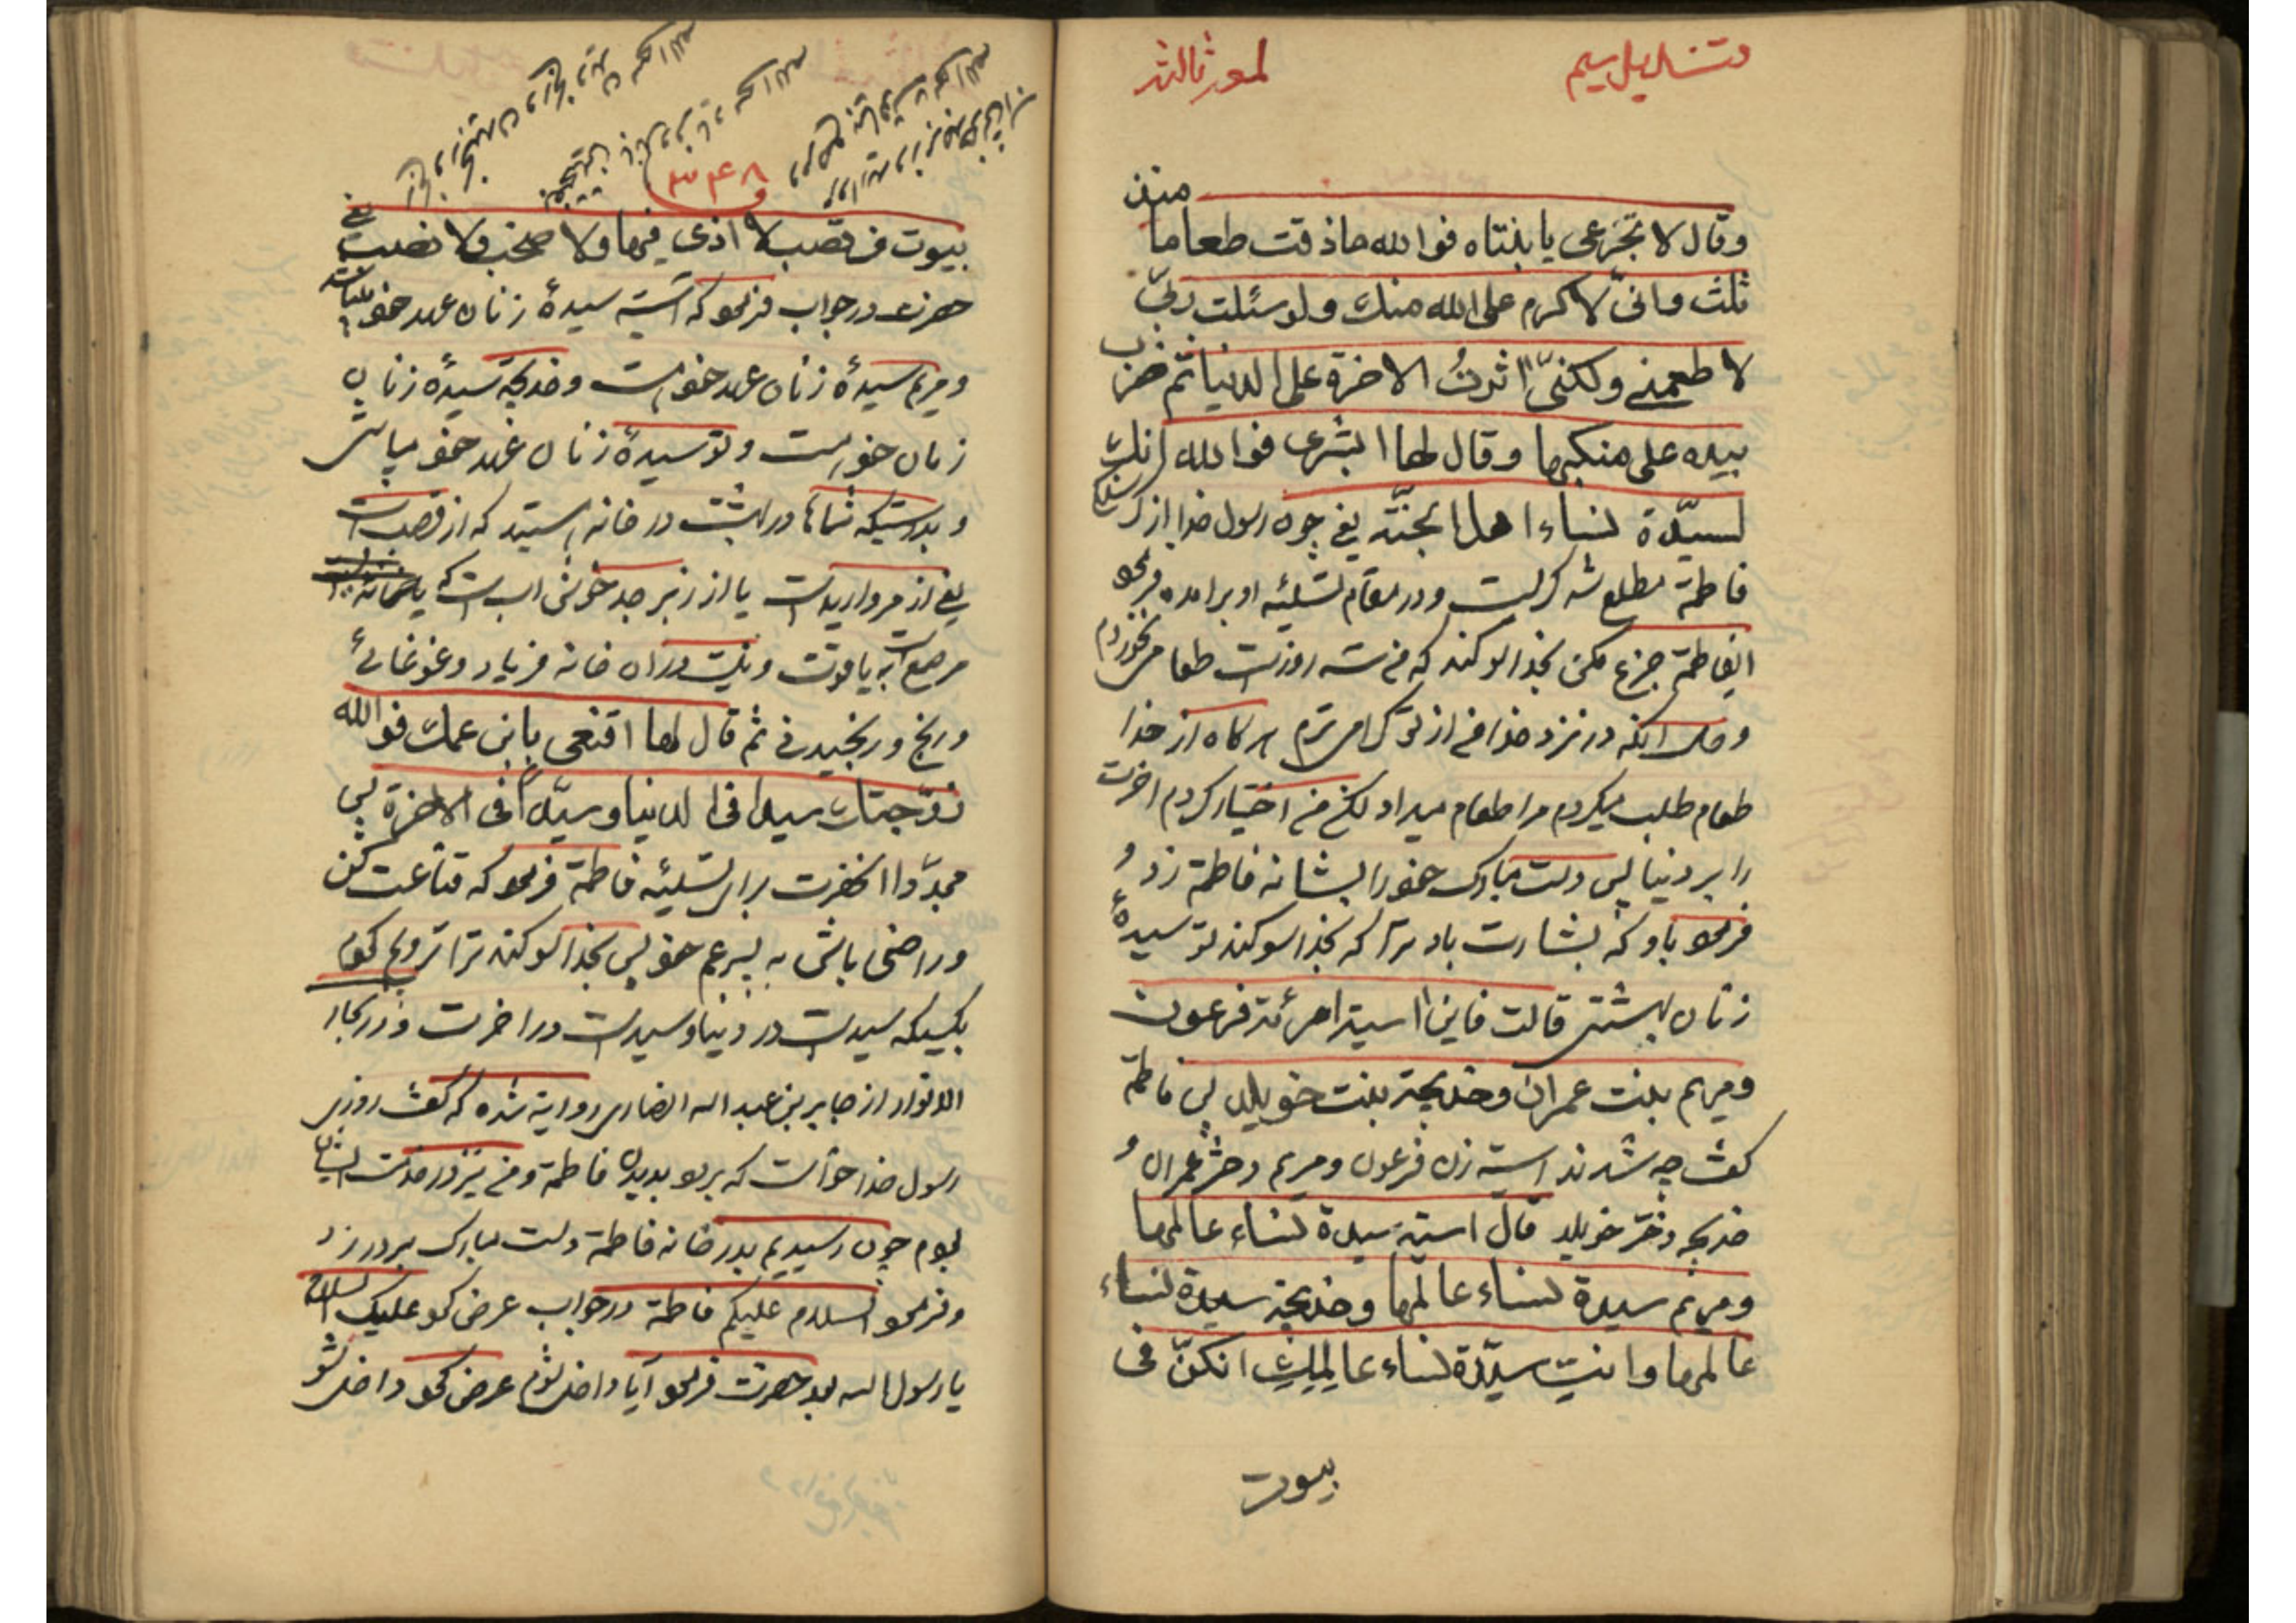 منذ
وقال لا تجزعی یا بنتاه فوالله ماذقت طعاما
ثلث وانّی لاکرم علی الله منك ولو سئلت ربّی
لاطعمنی ولکنّی اثرتُ الاخرة علی الدنیا ثم ضرب
بیده علی منکبها وقال لها ابشری فوالله انك
لسیّدة نساء اهل الجنّة یعنی چون رسول خدا از
فاطمة مطلع شد کریست ودر مقام تسلیه او برامده فرمود
ایفاطمة جزع مکن بخدا سوکند که من سه روزست طعام نخوردم
وحال انکه در نزد خدا من از تو کرامی ترم هرکاه از خدا
طعام طلب میکردم مرا طعام میداد لکن من اختیار کردم اخرت
را بر دنیا پس دست مبارک خود را بشانه فاطمة زد و
فرمود باو که بشارت باد ترا که بخدا سوکند تو سیدهٔ
زنان بهشتی قالت فاین اسیة امرئة فرعون
ومریم بنت عمران وخدیجة بنت خویلد پس فاطمة
کفت چه شدند اسیه زن فرعون ومریم دختر عمران و
خدیجه دختر خویلد قال اسیة سیدة نساء عالمها
ومریم سیدة نساء عالمها وخدیجة سیدة نساء
عالمها وانتِ سیّدة نساء عالمِكِ انکنّ فی
بیوت
۳۴۸
بیوت من قصب لا اذی فیها ولا صخب ولا نصب یعنی
حضرت در جواب فرمود که اسیه سیدهٔ زنان عهد خود
ومریم سیدهٔ زنان عهد خود است وخدیجة سیدهٔ زنان
زمان خود است وتو سیدهٔ زنان عهد خود میباشی
وبدرستیکه شماها در بهشت در خانه هستید که از قصب است
یعنی از مرواریدست یا از زبرجد خوش اب است که
مرصع است به یاقوت ونیست در ان خانه فریاد وغوغائی
ورنج ورنجیدنی ثم قال لها اقنعی بابن عمك فوالله
زوّجتك سیدا فی الدنیا وسیّدا فی الاخرة پس
مجدّدا انحضرت برای تسلیه فاطمة فرمود که قناعت کن
وراضی باش به پسر عم خود پس بخدا سوکند ترا تزویج کردم
بکسیکه سیدست در دنیا وسیدست در اخرت ودر بحار
الانوار از جابر بن عبد اله انصاری روایة شده که کفت روزی
رسول خدا خواست که برود بدیدن فاطمة ومن نیز در خدمت ایشان
بودم چون رسیدیم بدر خانه فاطمة دست مبارک بر در زد
وفرمود السلام علیکم فاطمة در جواب عرض کرد علیک السلام
یا رسول اله بعد حضرت فرمود آیا داخل شوم عرض کرد داخل شو